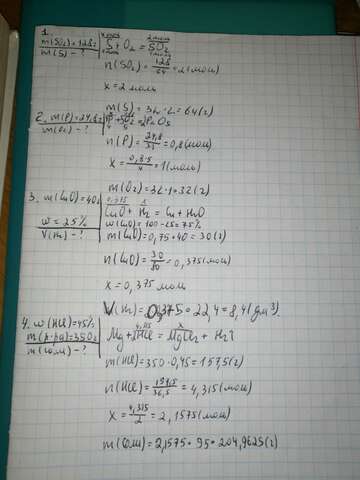 1.
m(SO₂)=128г
m(S) - ?
x моль 2 моль
S + O₂ = SO₂
1 моль 1 моль
n(SO₂) = 128/64 = 2 (моль)
x = 2 моль
m(S) = 32 · 2 = 64 (г)
2. m(P)=24,8г
m(O₂) - ?
4P + 5O₂ = 2P₂O₅
4 5
n(P) = 24,8/31 = 0,8 (моль)
x = 0,8·5/4 = 1 (моль)
m(O₂) = 32 · 1 = 32 (г)
3. m(CuO)=40г
w = 25%
V(H₂) - ?
0,375 x
CuO + H₂ = Cu + H₂O
w(CuO) = 100-25 = 75%
m(CuO) = 0,75 · 40 = 30 (г)
n(CuO) = 30/80 = 0,375 (моль)
x = 0,375 моль
V(H₂) = 0,375 · 22,4 = 8,4 (дм³)
4. w(HCl)=45%
m(р-ра)=350г
m(соли) - ?
4,315 x
Mg + 2HCl = MgCl₂ + H₂↑
m(HCl) = 350 · 0,45 = 157,5 (г)
n(HCl) = 157,5/36,5 = 4,315 (моль)
x = 4,315/2 = 2,1575 (моль)
m(соли) = 2,1575 · 95 = 204,9625 (г)